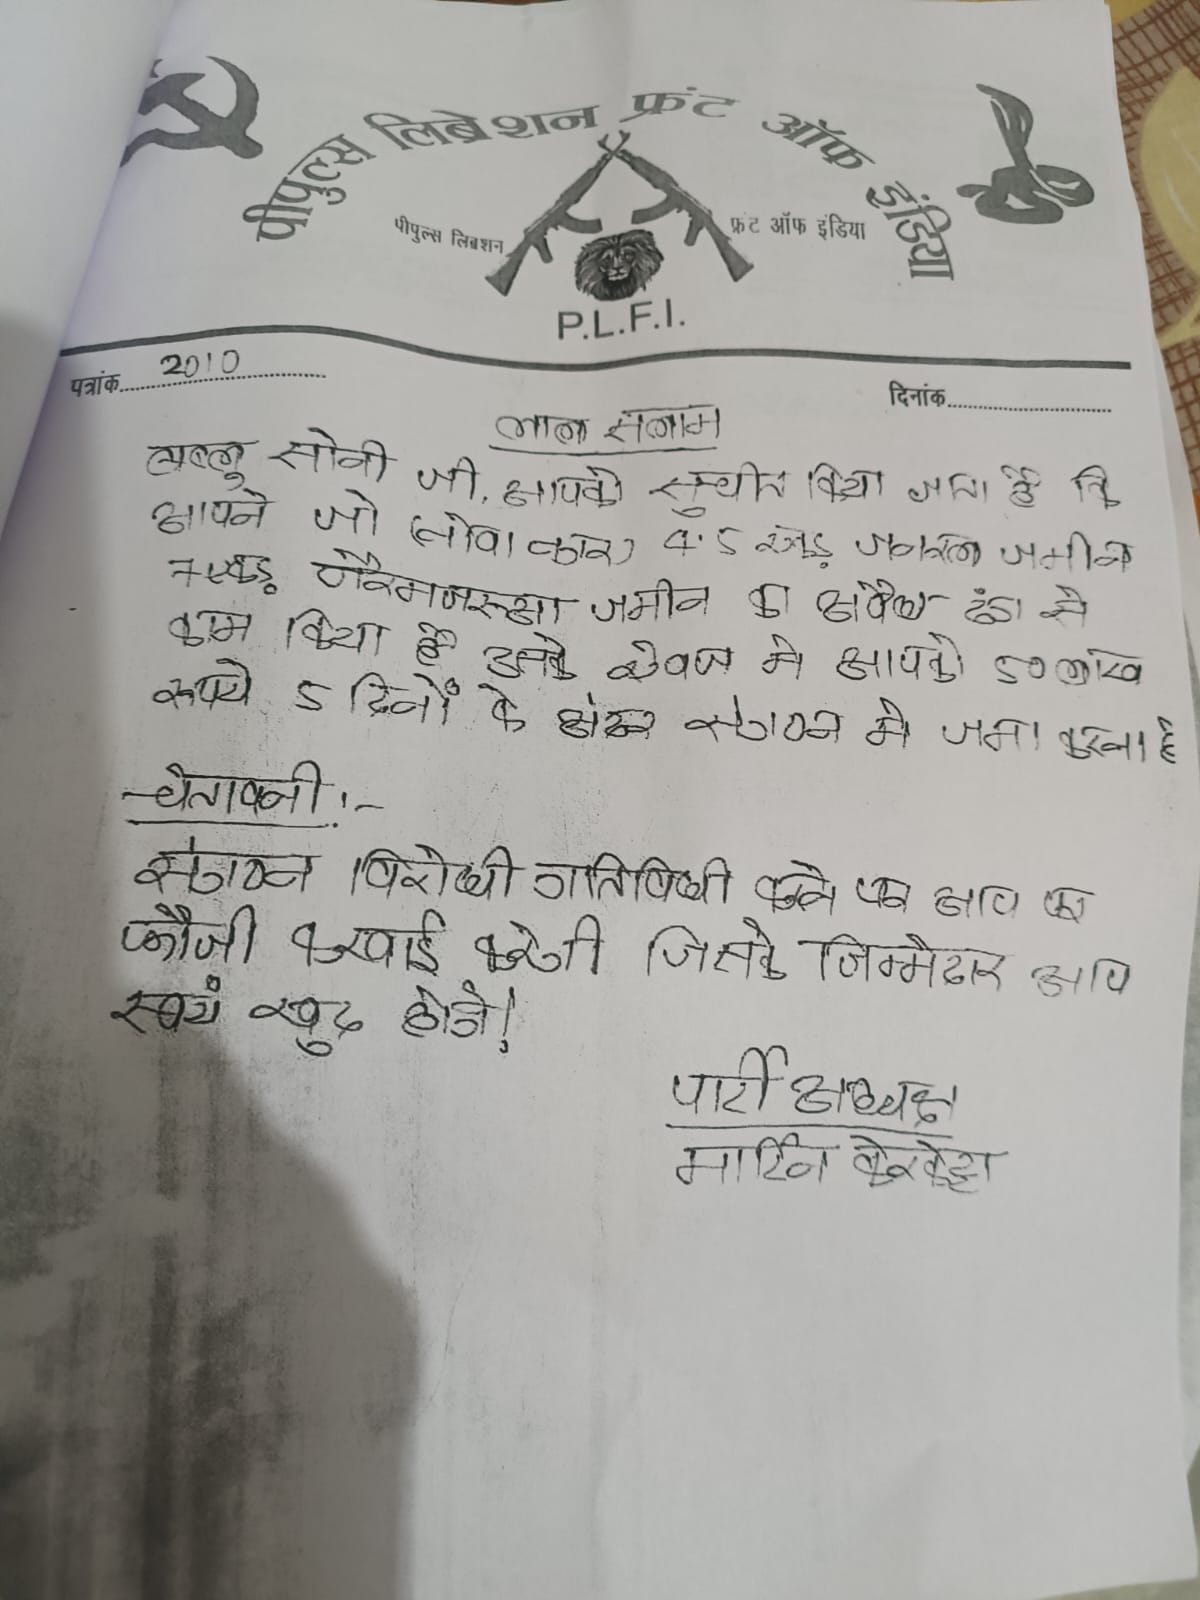 पीपुल्स लिब्रेशन फ्रंट ऑफ इंडिया
पीपुल्स लिबशन फ्रंट ऑफ इंडिया
P.L.F.I.
पत्रांक 2010 दिनांक
लाल सलाम
लल्लू सोनी जी, आपको सुचीत किया जाता है कि
आपने जो (लोवा कार) 4.5 एकड़ जमीन
7 एकड़ गैरमजरूआ जमीन का अवैध ढंग से
काम किया है उसके ऐवज मे आपको 50 लाख
रूपये 5 दिनों के अंदर संगठन मे जमा करना है
चेतावनी :-
संगठन विरोधी गतिविधी करने पर आप पर
फौजी करवाई करेगी जिसके जिम्मेदार आप
स्वयं खुद होगे!
पार्टी अध्यक्ष
मार्टिन केरकेट्टा